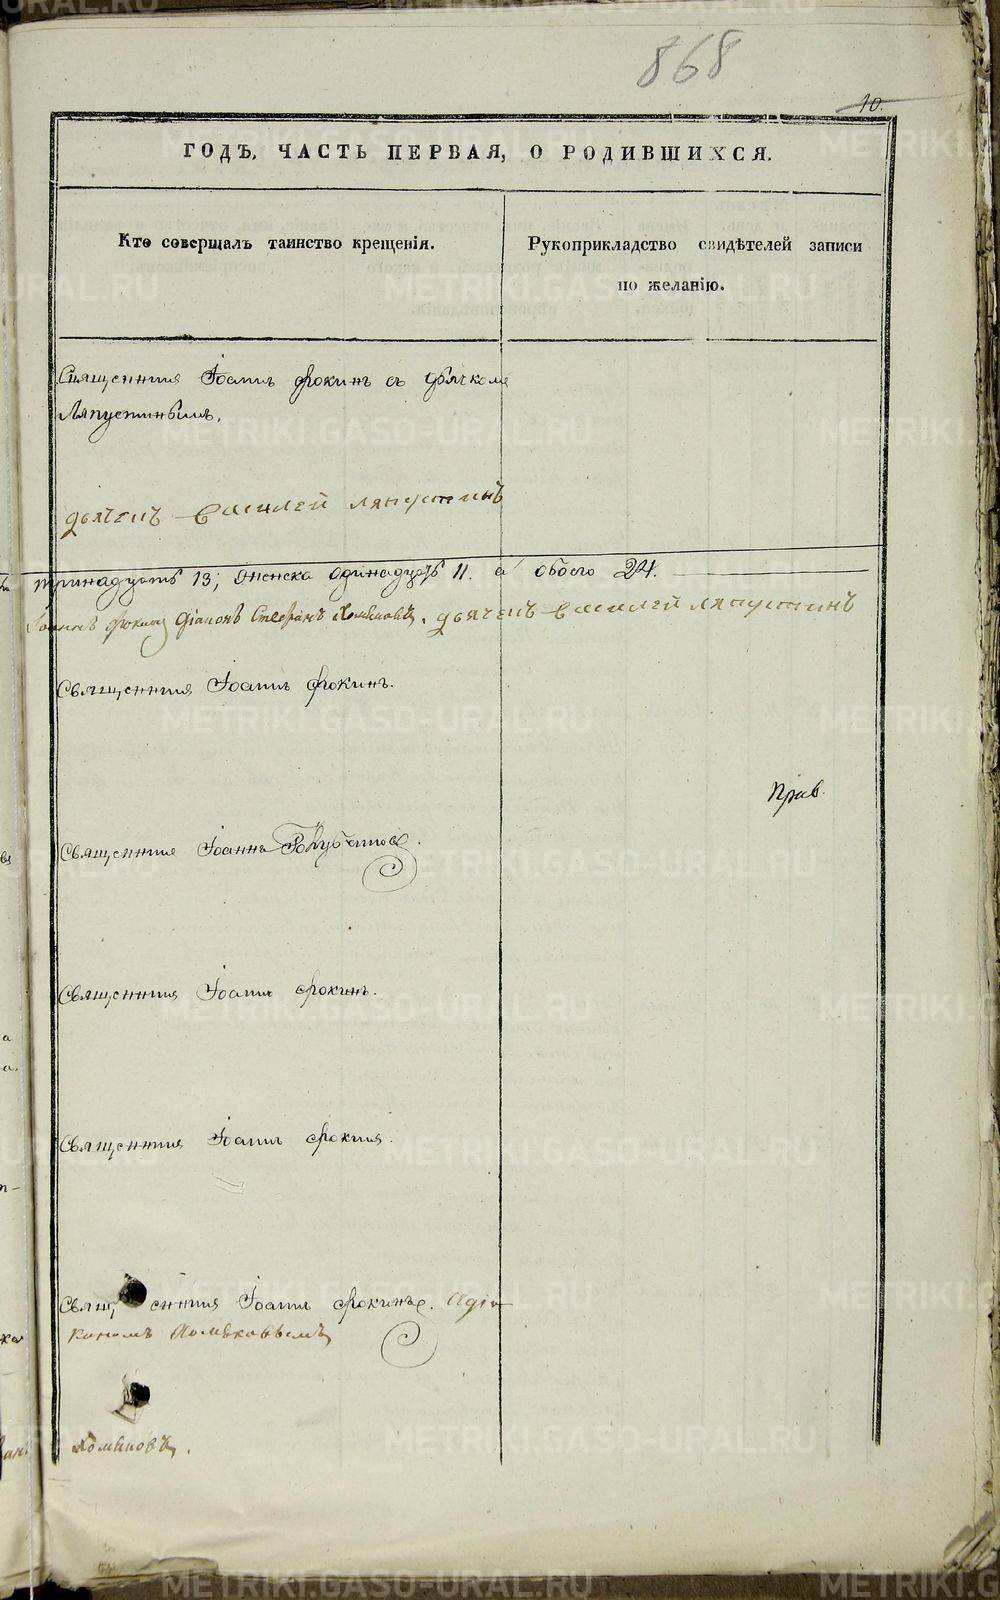 868
10.
ГОДЪ, ЧАСТЬ ПЕРВАЯ, О РОДИВШИХСЯ.
Кто совершалъ таинство крещенія.
Рукоприкладство свидѣтелей записи
по желанію.
Священникъ Іоаннъ Фокинъ съ дьячкомъ
Ляпустинымъ.
дьячекъ василей ляпустинъ
тринадцать 13, женска одинадцать 11. а обоего 24.
Іоаннъ Фокинъ Діаконъ Стефанъ Хомяковъ. дьячекъ василей ляпустинъ
Священникъ Іоаннъ Фокинъ.
Прав.
Священникъ Іоаннъ
Священникъ Іоаннъ Фокинъ.
Священникъ Іоаннъ Фокинъ.
Священникъ Іоаннъ Фокинъ. съ діа
кономъ Хомяковымъ
Хомяковъ.
METRIKI.GASO-URAL.RU